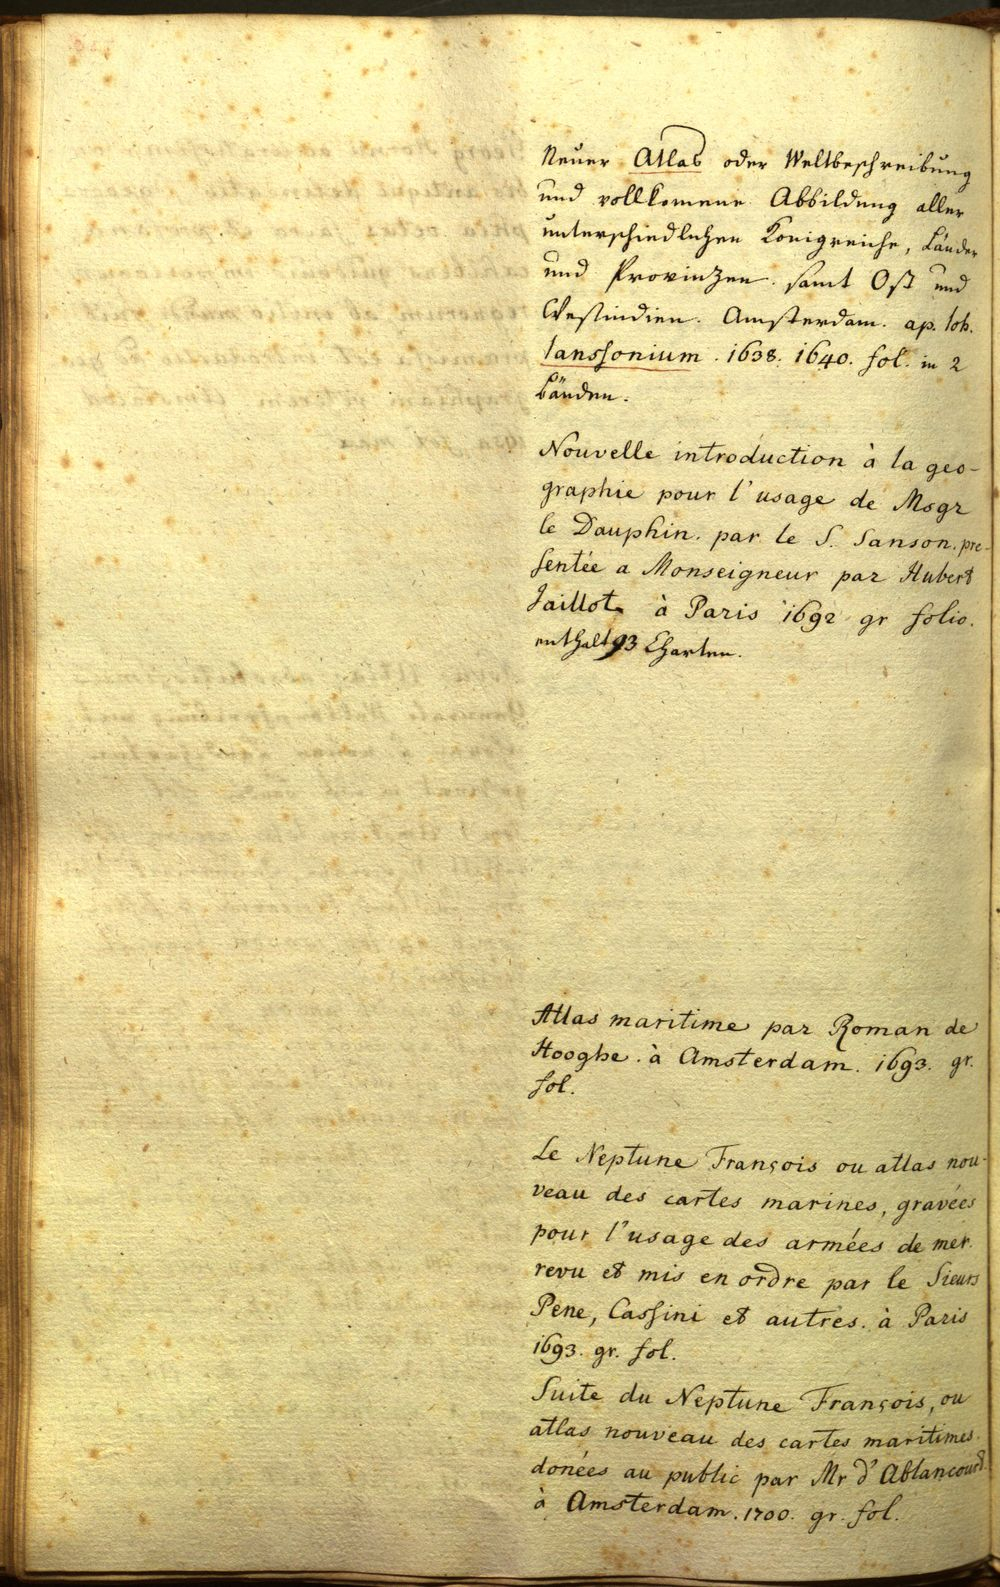 Neuer Atlas oder Weltbeschreibung
und vollkomene Abbildung aller
unterschiedlichen Konigreiche, Länder
und Provinzen samt Ost und
Westindien. Amsterdam. ap. Ioh.
Ianssonium. 1638. 1640. fol. in 2
Bänden.
Nouvelle introduction à la geo-
graphie pour l'usage de Msgr
le Dauphin. par le S. Sanson. pre-
sentée a Monseigneur par Hubert
Jaillot à Paris 1692 gr folio.
enthalt 93 Charten.
Atlas maritime par Roman de
Hooghe. à Amsterdam. 1693. gr.
fol.
Le Neptune François ou atlas nou-
veau des cartes marines, gravées
pour l'usage des armées de mer.
revu et mis en ordre par le Sieurs
Pene, Cassini et autres. à Paris
1693. gr. fol.
Suite du Neptune François, ou
atlas nouveau des cartes maritimes.
donées au public par Mr d'Ablancourd
à Amsterdam. 1700. gr. fol.